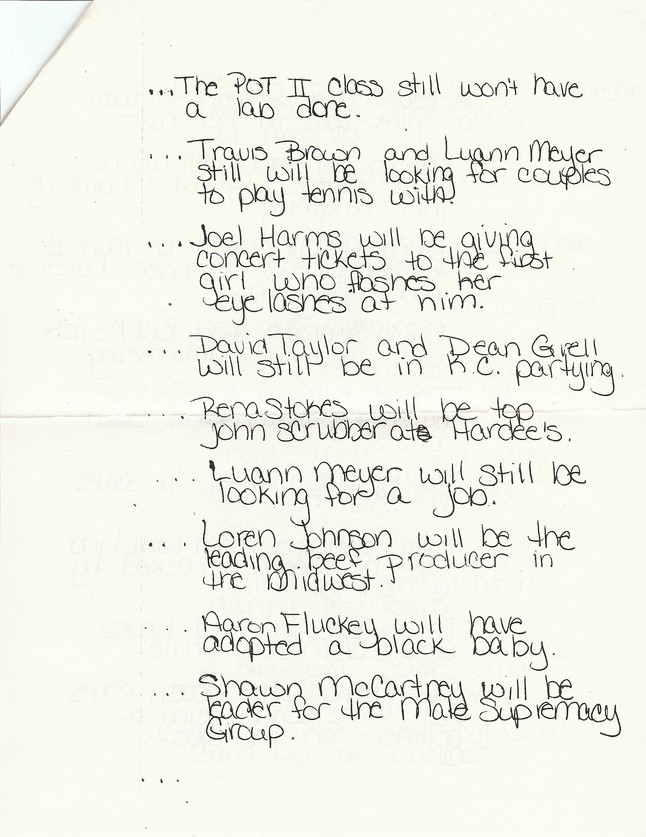 ...The POT II class still won't have
a lab done.
... Travis Brown and Luann Meyer
still will be looking for couples
to play tennis with!
....Joel Harms will be giving
concert tickets to the first
girl who flashes her
eyelashes at him.
... David Taylor and Dean Grell
will still be in K.C. partying.
.... Rena Stokes will be top
john scrubber at Hardee's.
... Luann Meyer will still be
looking for a job.
.... Loren Johnson will be the
leading beef producer in
the midwest.
... Aaron Fluckey will have
adopted a black baby.
... Shawn McCartney will be
leader for the Male Supremacy
Group.
...